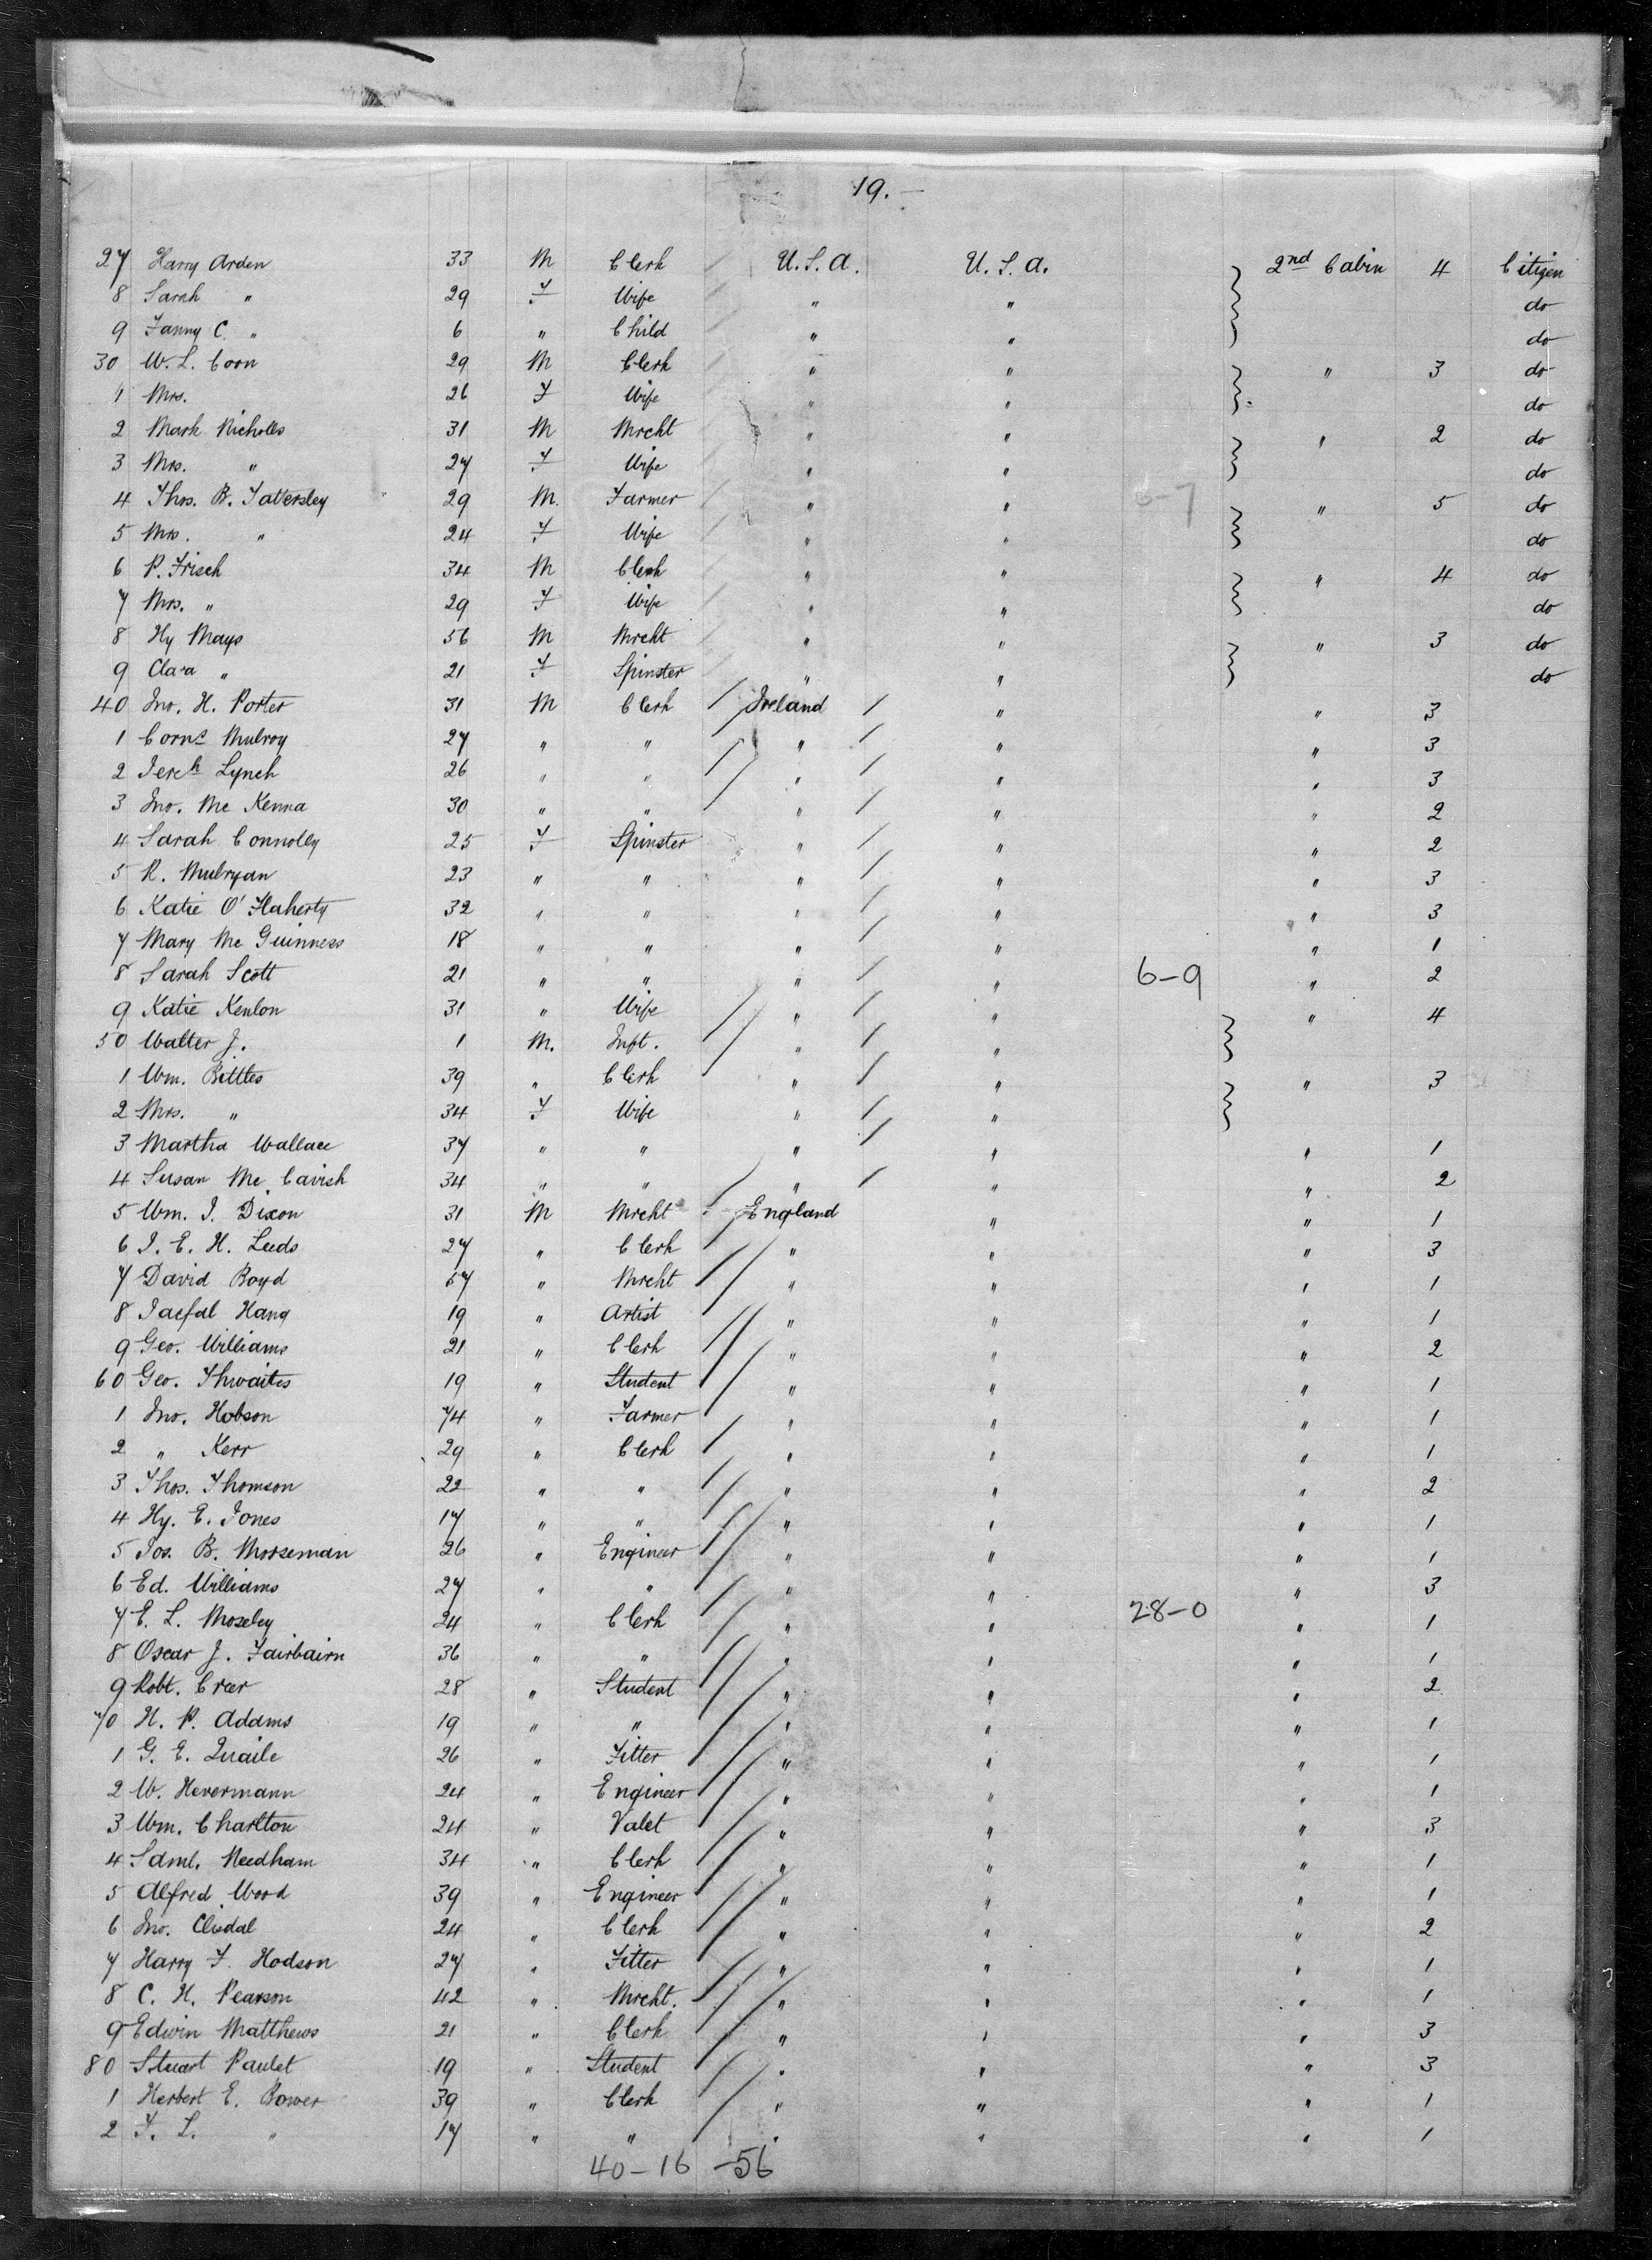 19.-
27 Harry Arden 33 M Clerk U.S.A. U.S.A. 2nd Cabin 4 Citizen
8 Sarah " 29 F Wife " " do
9 Fanny C. " 6 " Child " " do
30 W. L. Coon 29 M Clerk " " " 3 do
1 Mrs. 26 F Wife " " do
2 Mark Nicholls 31 M Mrcht " " " 2 do
3 Mrs. " 27 F Wife " " do
4 Thos. B. Tattersley 29 M. Farmer " " 6-7 " 5 do
5 Mrs. " 24 F Wife " " do
6 P. Frisch 34 M Clerk " " " 4 do
7 Mrs. " 29 F Wife " " do
8 Hy Mays 56 M Mrcht " " " 3 do
9 Clara " 21 F Spinster " " do
40 Jno. H. Porter 31 M Clerk Ireland " " 3
1 Corns Mulroy 27 " " " " " 3
2 Jerch Lynch 26 " " " " " 3
3 Jno. Mc Kenna 30 " " " " " 2
4 Sarah Connolly 25 F Spinster " " " 2
5 K. Mulryan 23 " " " " " 3
6 Katie O'Flaherty 32 " " " " " 3
7 Mary Mc Guinness 18 " " " " " 1
8 Sarah Scott 21 " " " " 6-9 " 2
9 Katie Kenlon 31 " Wife " " " 4
50 Walter J. 1 M. Inft. " "
1 Wm. Bittles 39 " Clerk " " " 3
2 Mrs. " 34 F Wife " "
3 Martha Wallace 37 " " " " " 1
4 Susan Mc Cavish 34 " " " " " 2
5 Wm. J. Dixon 31 M Mrcht England " " 1
6 J. E. H. Leeds 27 " Clerk " " " 3
7 David Boyd 57 " Mrcht " " " 1
8 Hang 19 " Artist " " " 1
9 Geo. Williams 21 " Clerk " " " 2
60 Geo. Thwaites 19 " Student " " " 1
1 Jno. Hobson 74 " Farmer " " " 1
2 " Kerr 29 " Clerk " " " 1
3 Thos. Thomson 22 " " " " " 2
4 Hy. E. Jones 17 " " " " " 1
5 Jos. B. Morseman 26 " Engineer " " " 1
6 Ed. Williams 27 " " " " " 3
7 E. L. Moseley 24 " Clerk " " 28-0 " 1
8 Oscar J. Fairbairn 36 " " " " " 1
9 Robt. Crer 28 " Student " " " 2
70 H. P. Adams 19 " " " " " 1
1 G. E. Quaile 26 " Fitter " " " 1
2 W. Hevermann 24 " Engineer " " " 1
3 Wm. Charlton 24 " Valet " " " 3
4 Saml. Needham 34 " Clerk " " " 1
5 Alfred Wood 39 " Engineer " " " 1
6 Jno. Clisdal 24 " Clerk " " " 2
7 Harry F. Hodson 27 " Fitter " " " 1
8 C. H. Pearson 42 " Mrcht. " " " 1
9 Edwin Matthews 21 " Clerk " " " 3
80 Stuart Paulet 19 " Student " " " 3
1 Herbert E. Bower 39 " Clerk " " " 1
2 F. L. " 17 " " " " " 1
40-16 -56